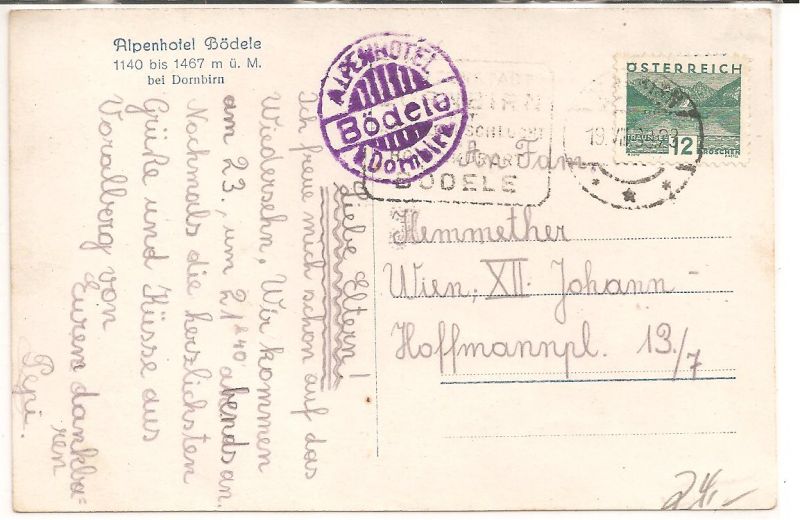 Alpenhotel Bödele
1140 bis 1467 m ü. M.
bei Dornbirn
ALPENHOTEL
Bödele
b. Dornbirn
BÖDELE
ÖSTERREICH
12
GROSCHEN
Liebe Eltern!
Ich freue mich schon auf das
Wiedersehn, Wir kommen
am 23., um 21 40 abends an.
Nochmals die herzlichsten
Grüße und Küsse aus
Voralberg von
Euren dankba=
ren
Pepi.
An Fam.
Hemmether
Wien, XII. Johann-
Hoffmannpl. 13/7